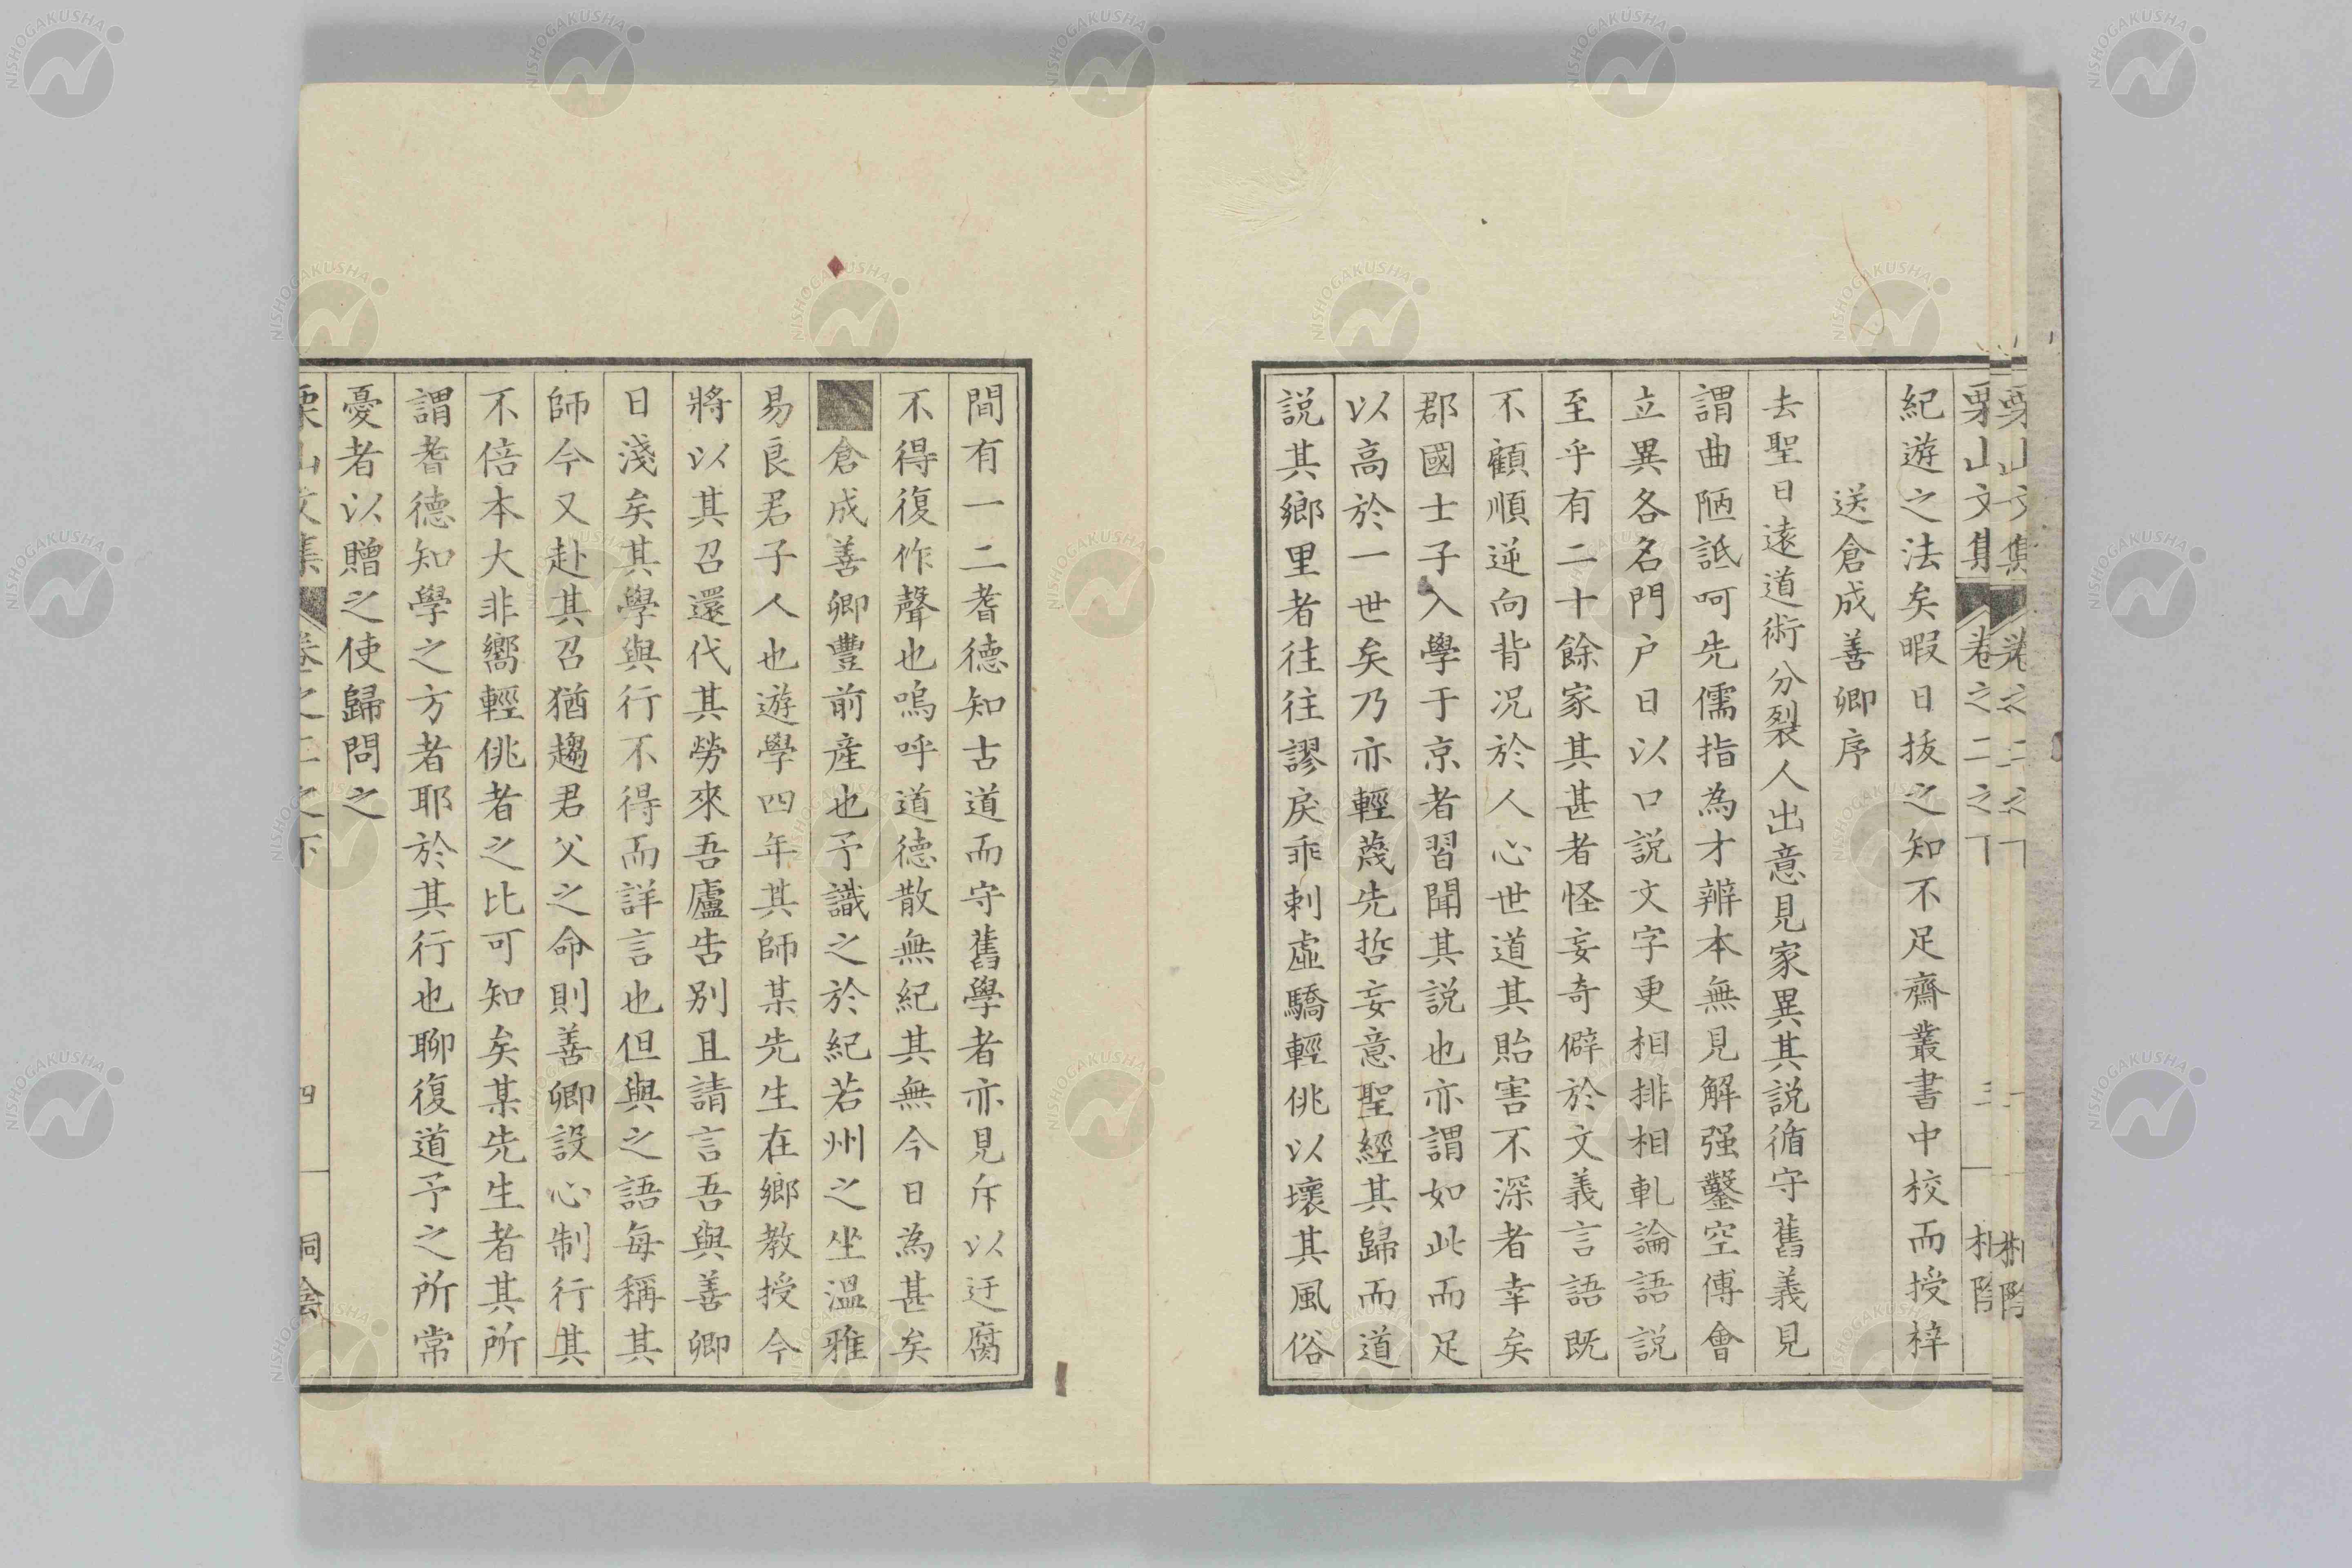 栗山文集 卷之二之下
紀遊之法矣暇日抜之知不足齋叢書中校而授梓
送倉成善卿序
去聖日遠道術分裂人出意見家異其説循守舊義見
謂曲陋詆呵先儒指為才辨本無見解强鑿空傅會
立異各名門户日以口説文字更相排相軋論語説
至乎有二十餘家其甚者怪妄奇僻於文義言語既
不顧順逆向背況於人心世道其貽害不深者幸矣
郡國士子入學于京者習聞其説也亦謂如此而足
以高於一世矣乃亦輕蔑先哲妄意聖經其歸而道
説其鄉里者往往謬戾乖剌虛驕輕佻以壞其風俗
間有一二耆德知古道而守舊學者亦見斥以迂腐
不得復作聲也嗚呼道德散無紀其無今日為甚矣
倉成善卿豐前産也予識之於紀若州之坐溫雅
易良君子人也遊學四年其師某先生在鄉教授今
將以其召還代其勞來吾廬告別且請言吾與善卿
日淺矣其學與行不得而詳言也但與之語每稱其
師今又赴其召猶趨君父之命則善卿設心制行其
不倍本大非嚮輕佻者之比可知矣某先生者其所
謂耆德知學之方者耶於其行也聊復道予之所常
憂者以贈之使歸問之
栗山文集 卷之二之下 四
NISHOGAKUSHA